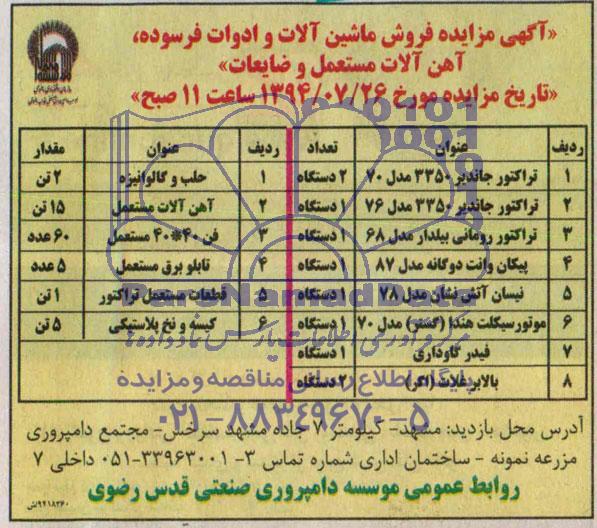 «آگهی مزایده فروش ماشین آلات و ادوات فرسوده،
آهن آلات مستعمل و ضایعات»
«تاریخ مزایده مورخ ۱۳۹۴/۰۷/۲۶ ساعت ۱۱ صبح»
ردیف عنوان تعداد ردیف عنوان مقدار
۱ تراکتور جاندیر ۳۳۵۰ مدل ۷۰ ۲ دستگاه ۱ حلب و گالوانیزه ۲ تن
۲ تراکتور جاندیر ۳۳۵۰ مدل ۷۶ ۱ دستگاه ۲ آهن آلات مستعمل ۱۵ تن
۳ تراکتور رومانی بیلدار مدل ۶۸ ۱ دستگاه ۳ فن ۴۰*۴۰ مستعمل ۶۰ عدد
۴ پیکان وانت دوگانه مدل ۸۷ ۱ دستگاه ۴ تابلو برق مستعمل ۵ عدد
۵ نیسان آتش نشان مدل ۷۸ ۱ دستگاه ۵ قطعات مستعمل تراکتور ۱ تن
۶ موتورسیکلت هندا (گستر) مدل ۷۰ ۱ دستگاه ۶ کیسه و نخ پلاستیکی ۵ تن
۷ فیدر گاوداری ۱ دستگاه
۸ بالابر غلات (اگر) ۲ دستگاه
پایگاه اطلاع رسانی مناقصه و مزایده
۰۲۱-۸۸۳۴۹۶۷۰-۵
آدرس محل بازدید: مشهد- کیلومتر ۷ جاده مشهد سرخس- مجتمع دامپروری
مزرعه نمونه - ساختمان اداری شماره تماس ۳- ۳۳۹۶۳۰۰۱-۰۵۱ داخلی ۷
روابط عمومی موسسه دامپروری صنعتی قدس رضوی
۹۴۱۸۳۶۰/ش